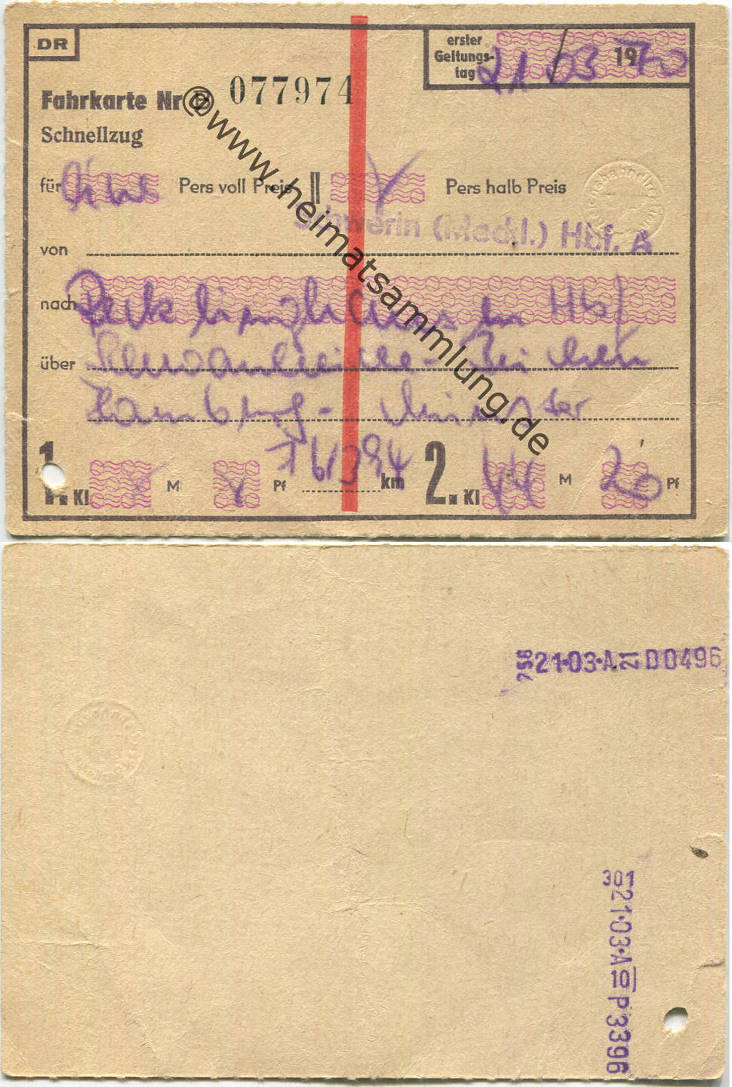 DR
erster
Geltungs-
tag
21/03 1970
Fahrkarte Nr
077974
Schnellzug
für Pers voll Preis Pers halb Preis
Schwerin (Meckl.) Hbf. A
von
nach Recklinghausen Hbf
über
Hamburg - Münster
1. Kl M Pf km 2. Kl 44 M 20 Pf
@www.heimatsammlung.de
756 21·03·A 21 D0496
301 21·03·A 10 P3396